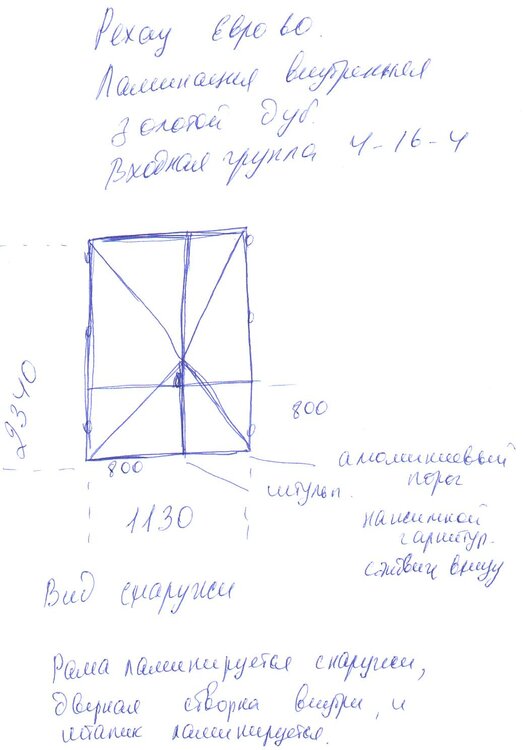 Рехау Евро 60.
Ламинация внутренняя
Золотой дуб.
Входная группа 4-16-4
2340
800
800
1130
штульп.
алюминиевый
порог
нажимной
гарнитур.
сэндвич внизу
Вид снаружи
Рама ламинируется снаружи,
дверная створка внутри, и
штапик ламинируется.